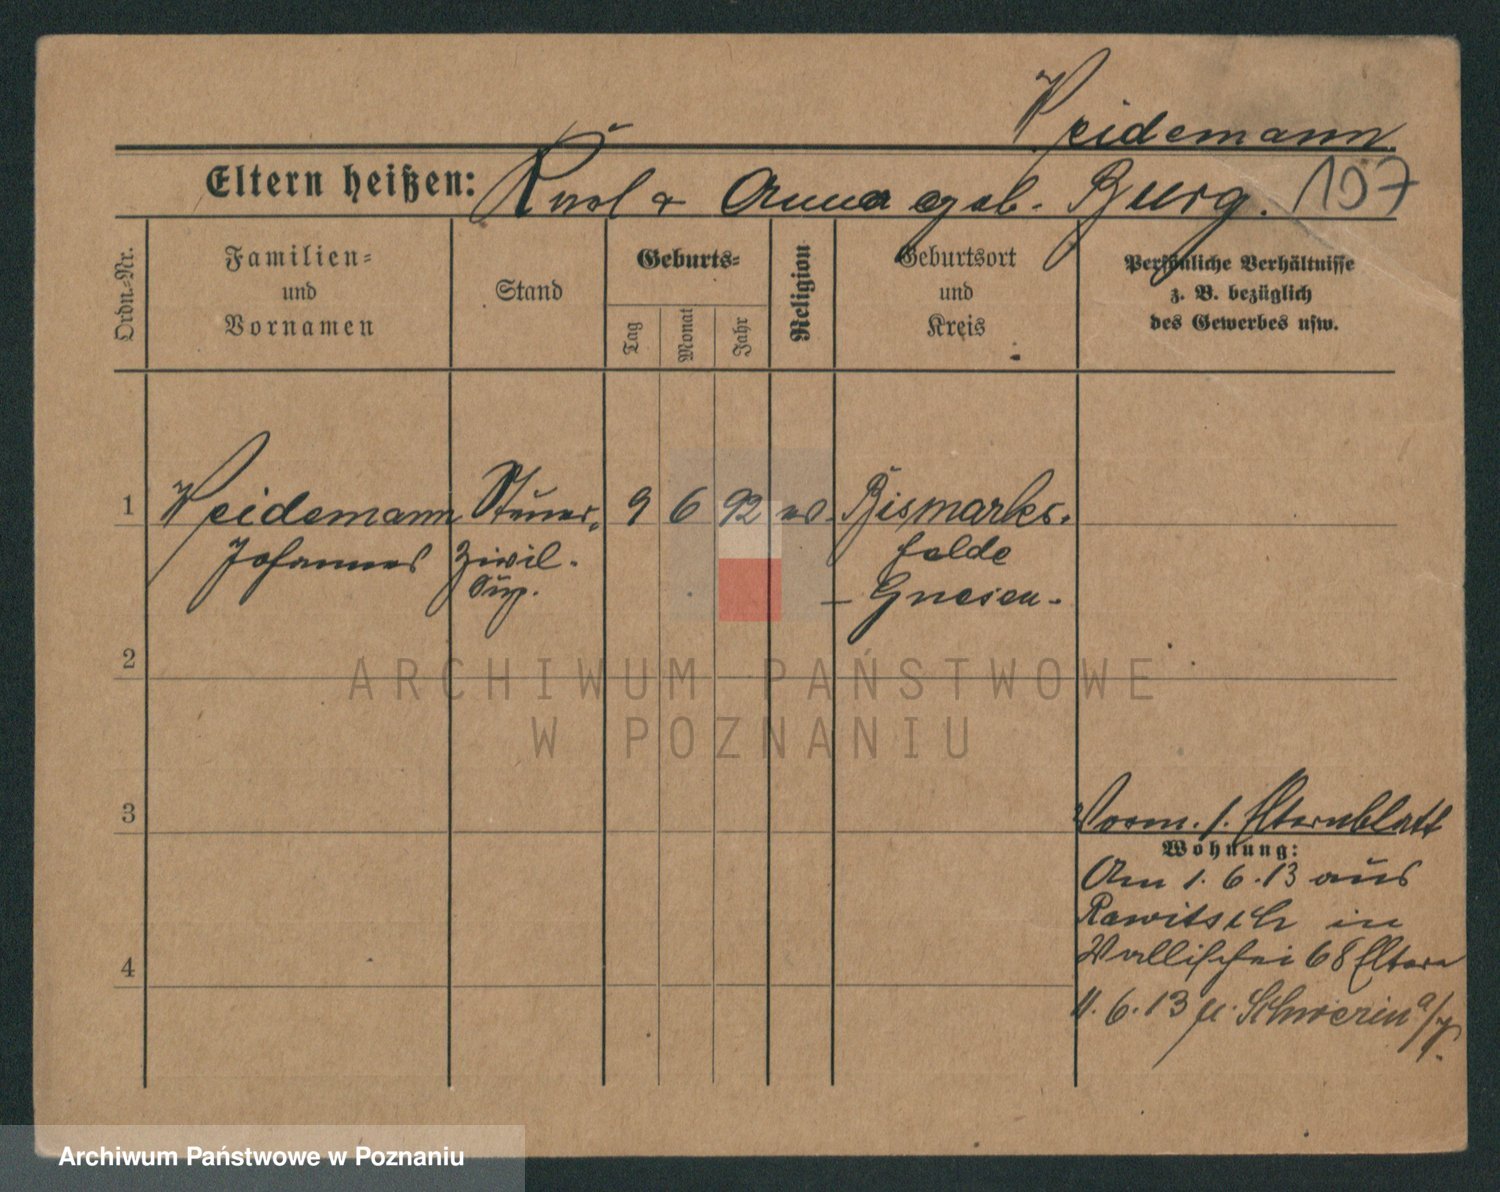 Weidemann
Eltern heißen: Karl & Anna geb. Burg. 197
Ordn.-Nr.
Familien- und Vornamen
Stand
Geburts-
Tag
Monat
Jahr
Religion
Geburtsort und Kreis
Persönliche Verhältnisse
z. B. bezüglich
des Gewerbes usw.
1 Weidemann Steuer- 9 6 92 ev. Bismarks-
Johannes Zivil- felde
Sup. – Gnesen -
2
3
4
Vorm. s. Elternblatt
Wohnung:
Am 1.6.13 aus
Rawitsch in
Wallischei 68 Eltern
11.6.13 n. Schwerin a/
ARCHIWUM PAŃSTWOWE
W POZNANIU
Archiwum Państwowe w Poznaniu